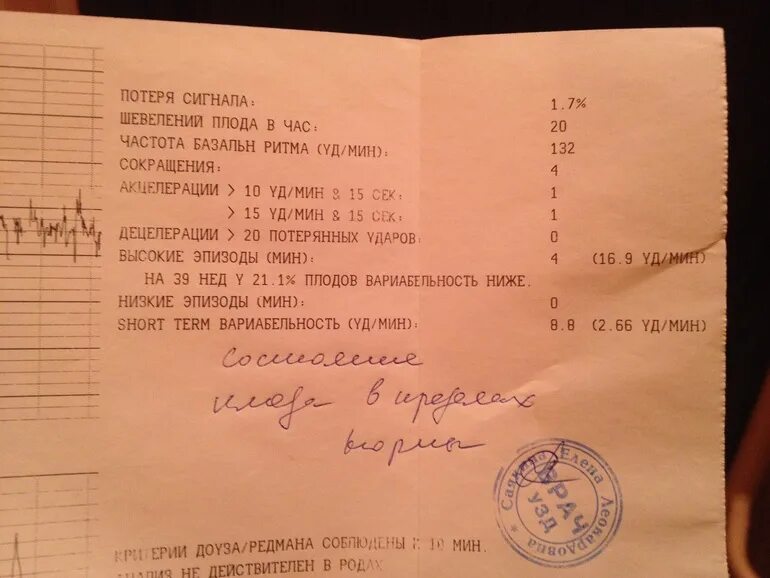 ПОТЕРЯ СИГНАЛА: 1.7%
ШЕВЕЛЕНИЙ ПЛОДА В ЧАС: 20
ЧАСТОТА БАЗАЛЬН РИТМА (УД/МИН): 132
СОКРАЩЕНИЯ: 4
АКЦЕЛЕРАЦИИ > 10 УД/МИН & 15 СЕК: 1
> 15 УД/МИН & 15 СЕК: 1
ДЕЦЕЛЕРАЦИИ > 20 ПОТЕРЯННЫХ УДАРОВ: 0
ВЫСОКИЕ ЭПИЗОДЫ (МИН): 4 (16.9 УД/МИН)
НА 39 НЕД У 21.1% ПЛОДОВ ВАРИАБЕЛЬНОСТЬ НИЖЕ.
НИЗКИЕ ЭПИЗОДЫ (МИН): 0
SHORT TERM ВАРИАБЕЛЬНОСТЬ (УД/МИН): 8.8 (2.66 УД/МИН)
Состояние
плода в пределах
нормы
Елена Леокардовна
ВРАЧ
УЗД
КРИТЕРИИ ДОУЗА/РЕДМАНА СОБЛЮДЕНЫ 10 МИН.
АНАЛИЗ НЕ ДЕЙСТВИТЕЛЕН В РОДАХ